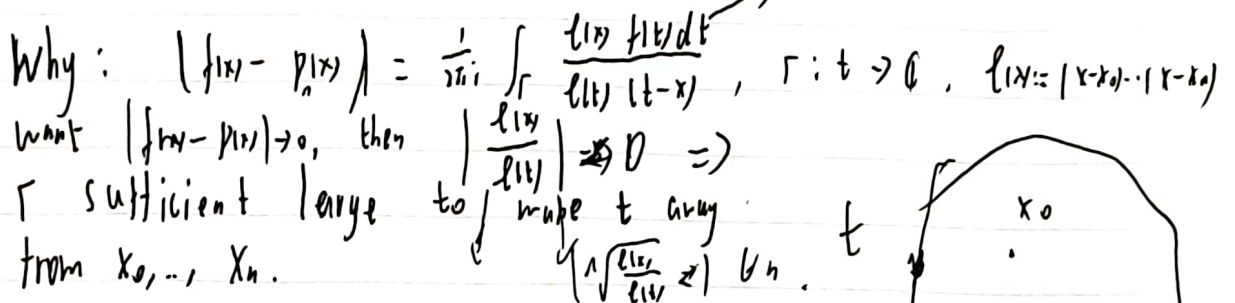 Why: |f(x) - p_n(x)| = \frac{1}{2πi} ∫_Γ \frac{l(x) f(t) dt}{l(t) (t-x)}, Γ: t → ℂ, l(x) := (x-x_0)...(x-x_n)
want |f(x) - p(x)| → 0, then |\frac{l(x)}{l(t)}| → 0 ⇒
Γ sufficient large to make t away
from x_0, .., x_n. ∀n.
t
x_0